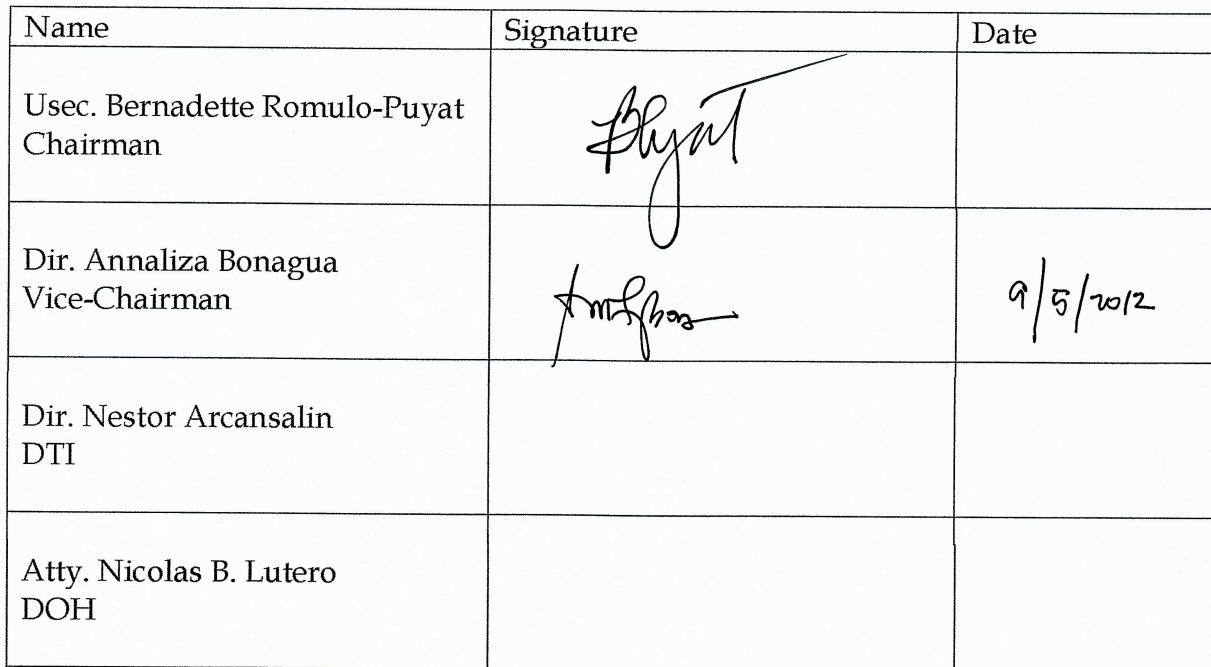 Name Signature Date
Usec. Bernadette Romulo-Puyat
Chairman
Dir. Annaliza Bonagua
Vice-Chairman
9/5/2012
Dir. Nestor Arcansalin
DTI
Atty. Nicolas B. Lutero
DOH